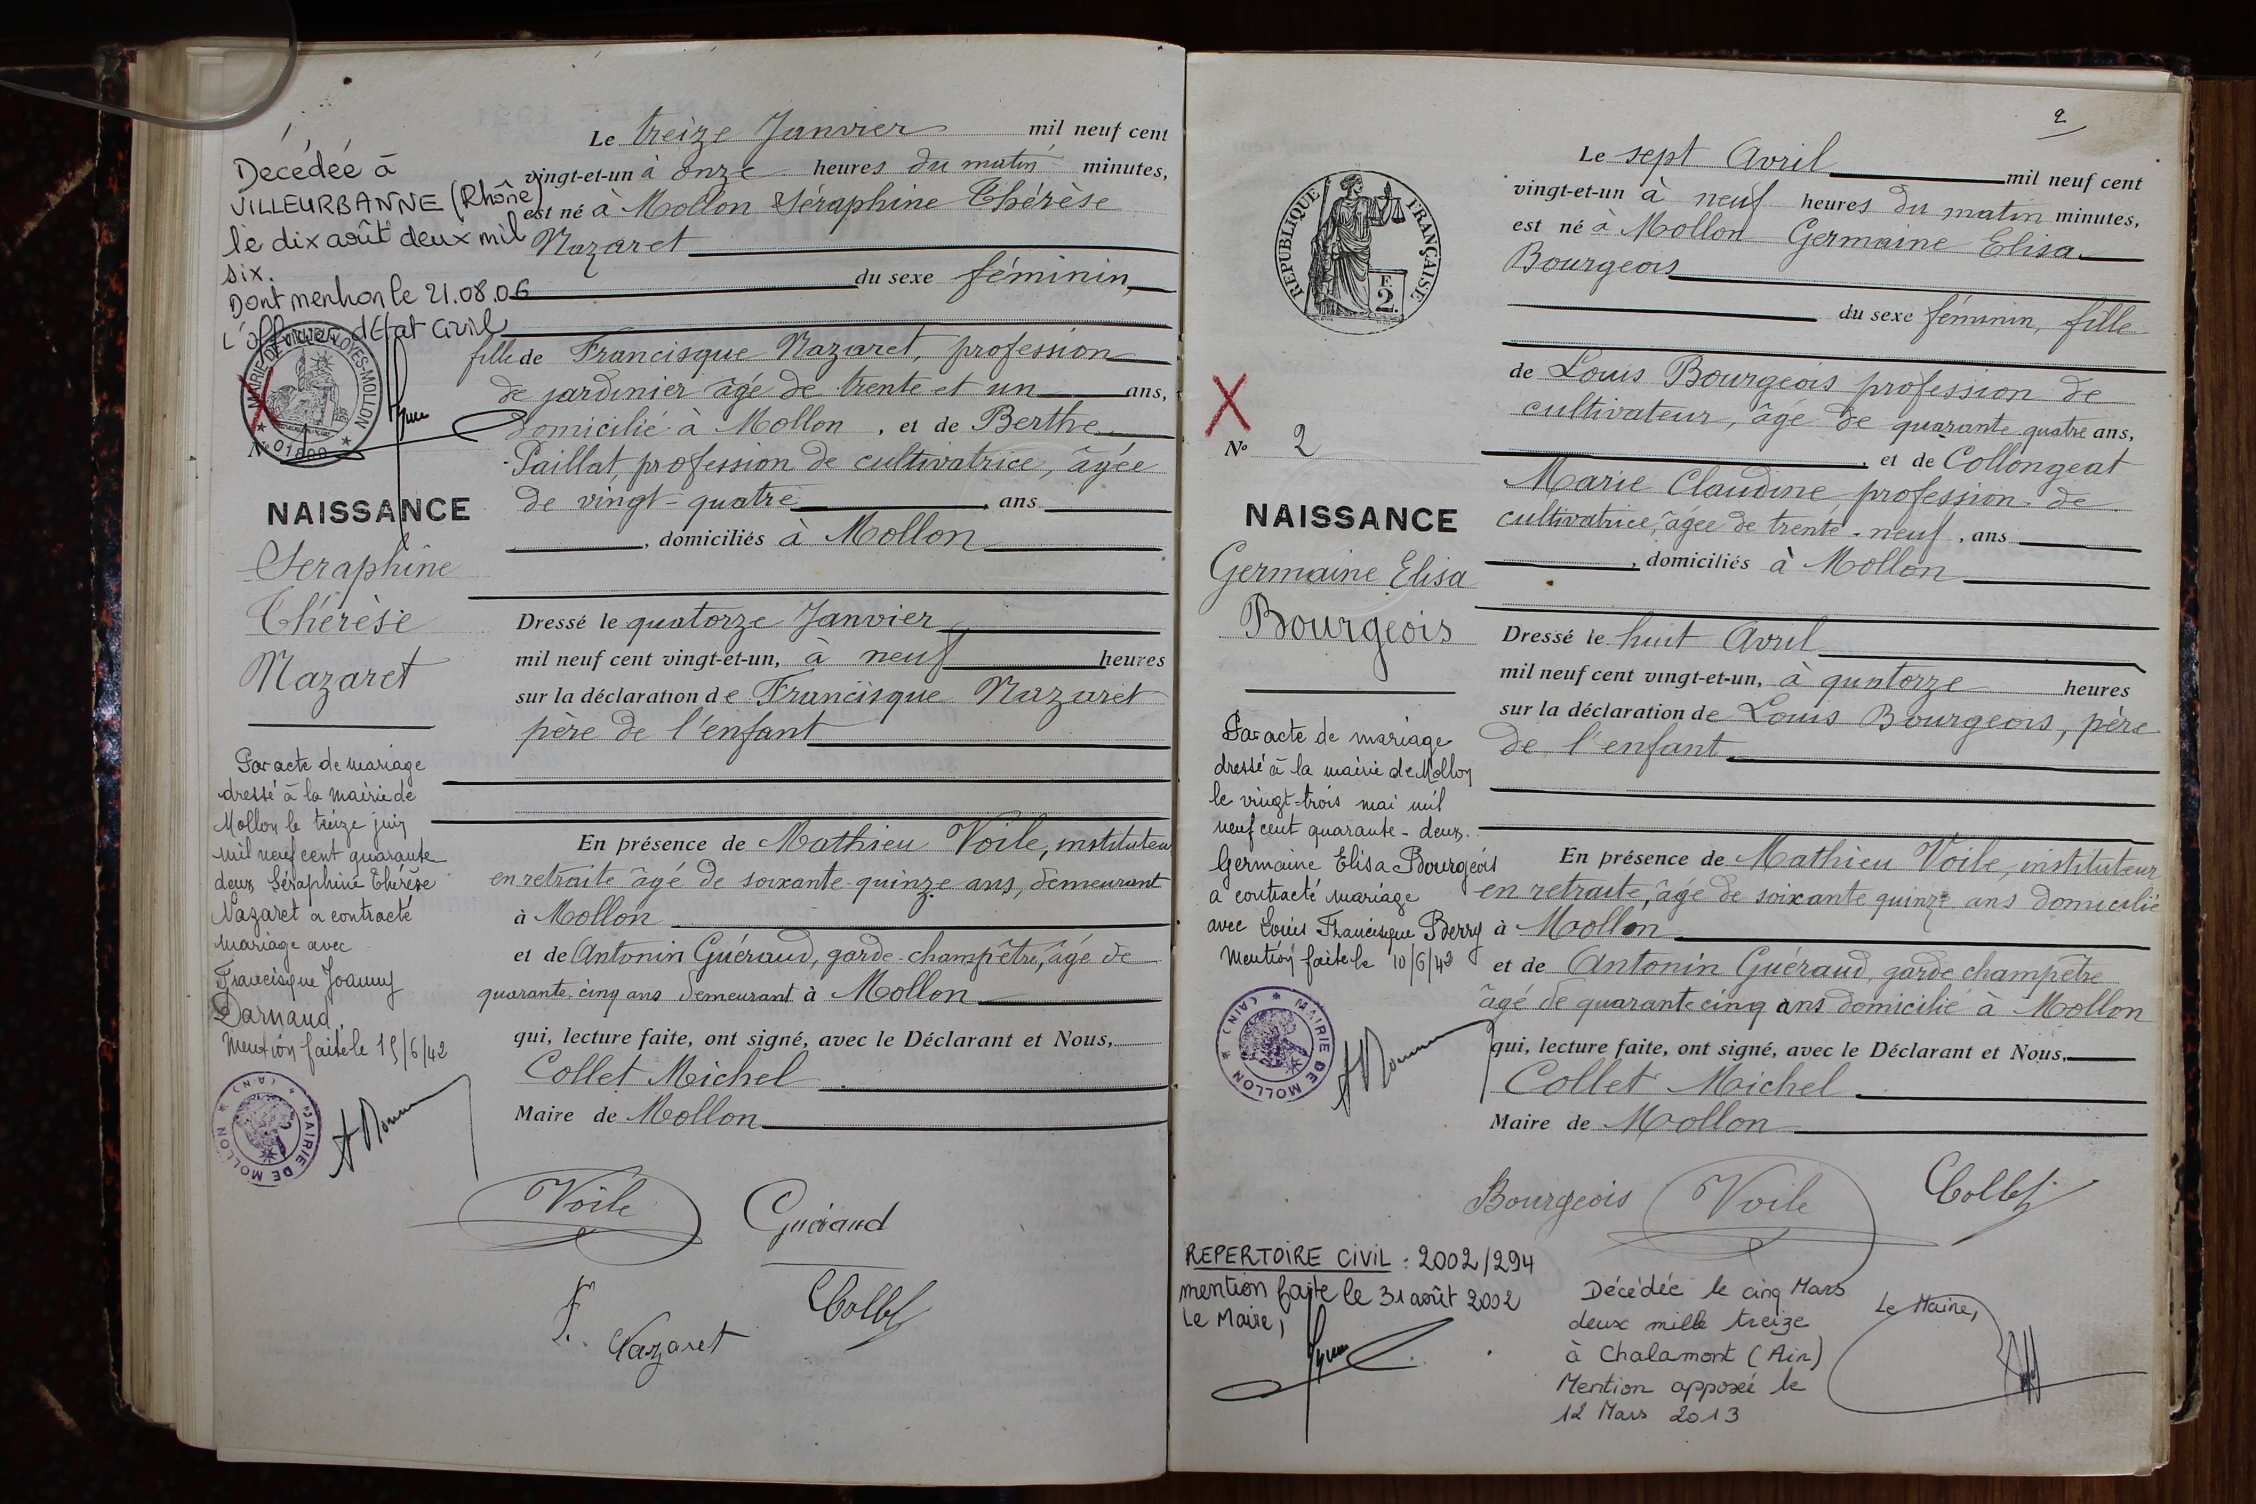 Décédée à
VILLEURBANNE (Rhône)
le dix août deux mil
six.
Dont mention le 21.08.06
L'officier d'Etat Civil
MAIRIE DE VILLIEU-LOYES-MOLLON
No
NAISSANCE
Séraphine
Thérèse
Nazaret
Par acte de mariage
dressé à la mairie de
Mollon le treize juin
mil neuf cent quarante
deux Séraphine Thérèse
Nazaret a contracté
mariage avec
Francisque Joanny
Darnaud.
Mention faite le 15/6/42
MAIRIE DE MOLLON * (AIN) *
Le treize Janvier mil neuf cent
vingt-et-un à onze heures du matin minutes,
est né à Mollon Séraphine Thérèse
Nazaret
du sexe féminin,
fille de Francisque Nazaret, profession
de jardinier âgé de trente et un ans,
domicilié à Mollon, et de Berthe
Paillat, profession de cultivatrice, âgée
de vingt-quatre ans
, domiciliés à Mollon
Dressé le quatorze Janvier
mil neuf cent vingt-et-un, à neuf heures
sur la déclaration de Francisque Nazaret
père de l'enfant
En présence de Mathieu Voile, instituteur
en retraite âgé de soixante-quinze ans, demeurant
à Mollon
et de Antonin Guéraud, garde-champêtre, âgé de
quarante-cinq ans demeurant à Mollon
qui, lecture faite, ont signé, avec le Déclarant et Nous,
Collet Michel
Maire de Mollon
Voile Guéraud
F. Nazaret Collet
2
REPUBLIQUE FRANÇAISE
F.
2.
X
No 2
NAISSANCE
Germaine Elisa
Bourgeois
Par acte de mariage
dressé à la mairie de Mollon
le vingt-trois mai mil
neuf cent quarante-deux.
Germaine Elisa Bourgeois
a contracté mariage
avec Louis Francisque Berry
Mention faite le 10/6/42
MAIRIE DE MOLLON * (AIN) *
Le sept Avril mil neuf cent
vingt-et-un à neuf heures du matin minutes,
est né à Mollon Germaine Elisa
Bourgeois
du sexe féminin, fille
de Louis Bourgeois profession de
cultivateur, âgé de quarante quatre ans,
, et de Collongeat
Marie Claudine, profession de
cultivatrice, âgée de trente-neuf, ans
, domiciliés à Mollon
Dressé le huit Avril
mil neuf cent vingt-et-un, à quatorze heures
sur la déclaration de Louis Bourgeois, père
de l'enfant
En présence de Mathieu Voile, instituteur
en retraite, âgé de soixante quinze ans domicilié
à Mollon
et de Antonin Guéraud, garde champêtre
âgé de quarante cinq ans domicilié à Mollon
qui, lecture faite, ont signé, avec le Déclarant et Nous,
Collet Michel
Maire de Mollon
Bourgeois Voile Collet
REPERTOIRE CIVIL : 2002/294
mention faite le 31 août 2002
Le Maire,
Décédée le cinq Mars
deux mille treize
à Chalamont (Ain)
Mention apposée le
12 Mars 2013
Le Maire,